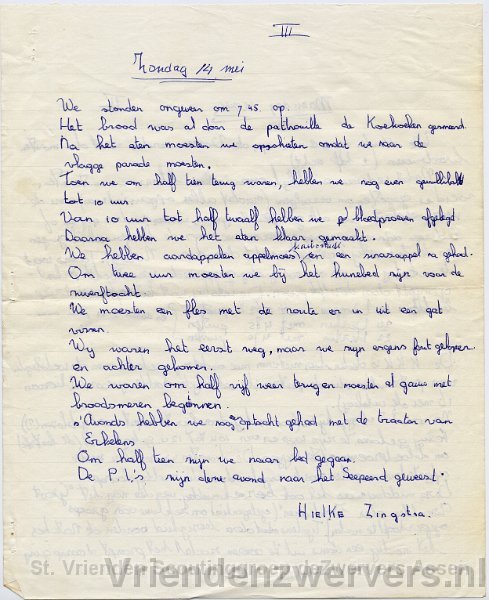 III
Zondag 14 mei
We stonden ongeveer om 7.45. op.
Het brood was al door de patrouille de Koekoeken gesmeerd.
Na het eten moesten we opschieten omdat we naar de
vlagge parade moesten.
Toen we om half tien terug waren, hebben we nog even
tot 10 uur
Van 10 uur tot half twaalf hebben we afgelegd
Daarna hebben we het eten klaar gemaakt.
We hebben aardappelen appelmoes, en een sinasappel na gehad.
Om twee uur moesten we bij het hunebed zijn voor de
zwerftocht.
We moesten een fles met de route er in uit een gat
vissen.
Wij waren het eerst weg, maar we zijn ergens fout gelopen
en achter gekomen.
We waren om half vijf weer terug en moesten al gauw met
broodsmeren beginnen.
s'Avonds hebben we nog optocht gehad met de van
Om half tien zijn we naar bed gegaan.
De P.L's zijn deze avond naar het geweest.
HIELKE Zingstra.
St. Vrienden Scoutinggroep deZwervers Assen
Vriendenzwervers.nl